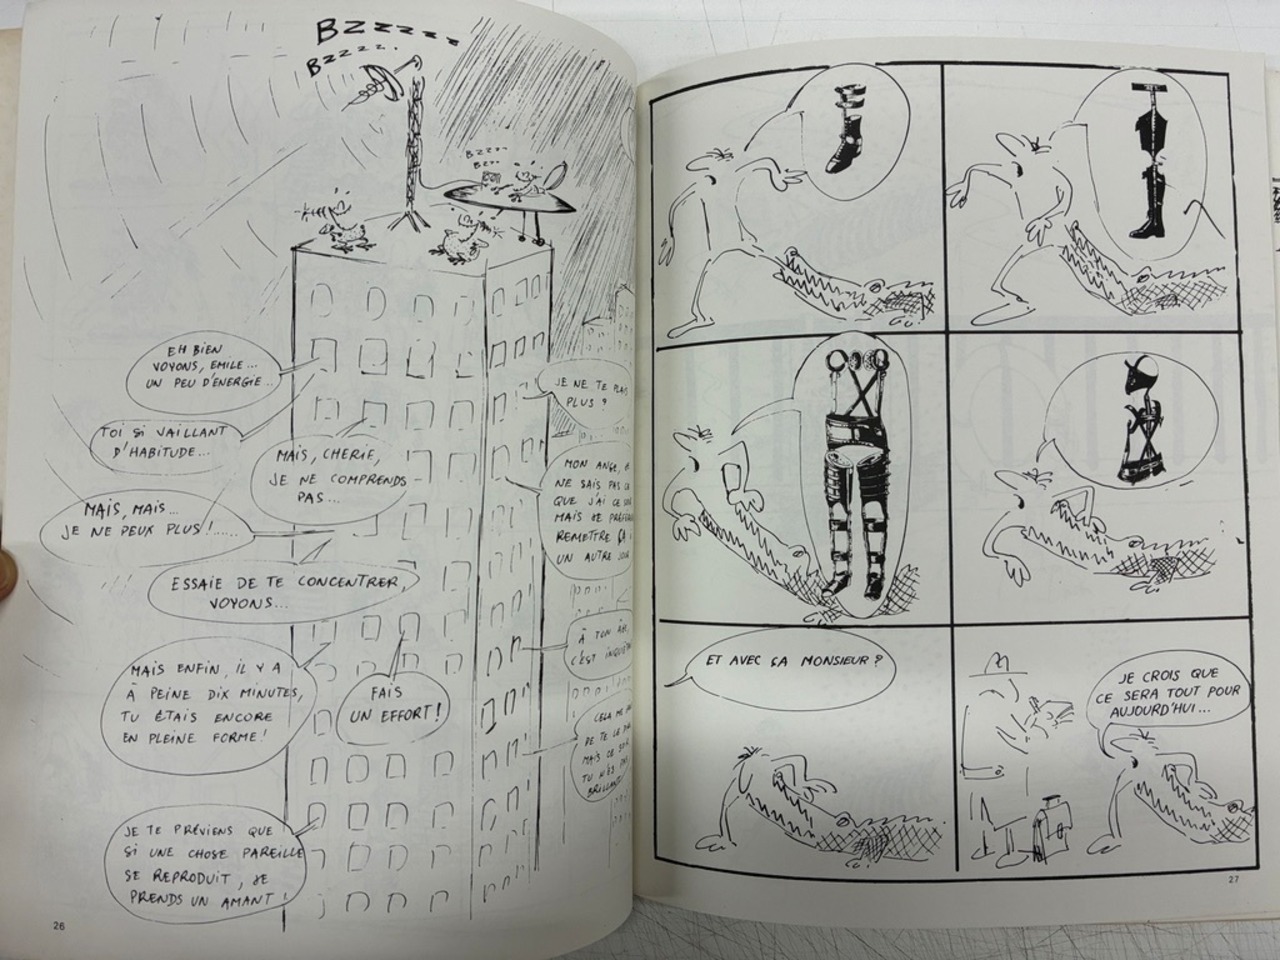 BZZZZZ
BZZZZ..
BZZZ..
BZZ..
EH BIEN
VOYONS, EMILE...
UN PEU D'ENERGIE...
TOI SI VAILLANT
D'HABITUDE...
MAIS, CHERIE,
JE NE COMPRENDS
PAS...
MAIS, MAIS...
JE NE PEUX PLUS!......
ESSAIE DE TE CONCENTRER,
VOYONS...
MAIS ENFIN, IL Y A
À PEINE DIX MINUTES,
TU ÉTAIS ENCORE
EN PLEINE FORME!
FAIS
UN EFFORT!
JE TE PRÉVIENS QUE
SI UNE CHOSE PAREILLE
SE REPRODUIT, JE
PRENDS UN AMANT!
JE NE TE
PLUS?
MON ANGE,
NE SAIS PAS
QUE J'AI CE
MAIS JE
REMETTRE ÇA
UN AUTRE
À TON
C'EST
CELA ME
DE TE LE
MAIS CE
TU N'ES PAS
BRILLANT
26
ET AVEC ÇA MONSIEUR?
JE CROIS QUE
CE SERA TOUT POUR
AUJOURD'HUI...
27